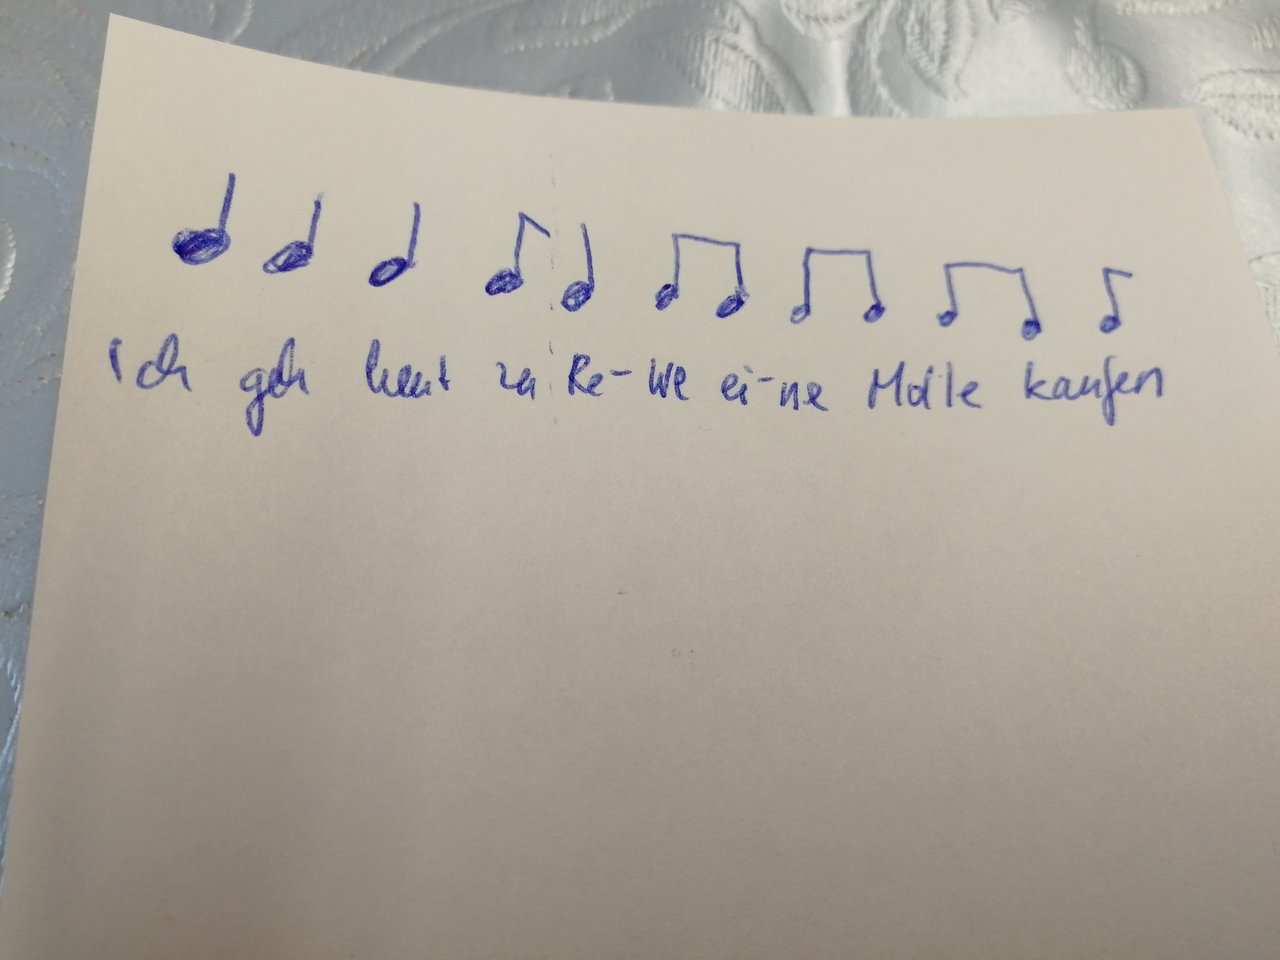 Ich geh heut zu Re-We ei-ne Molle kaufen